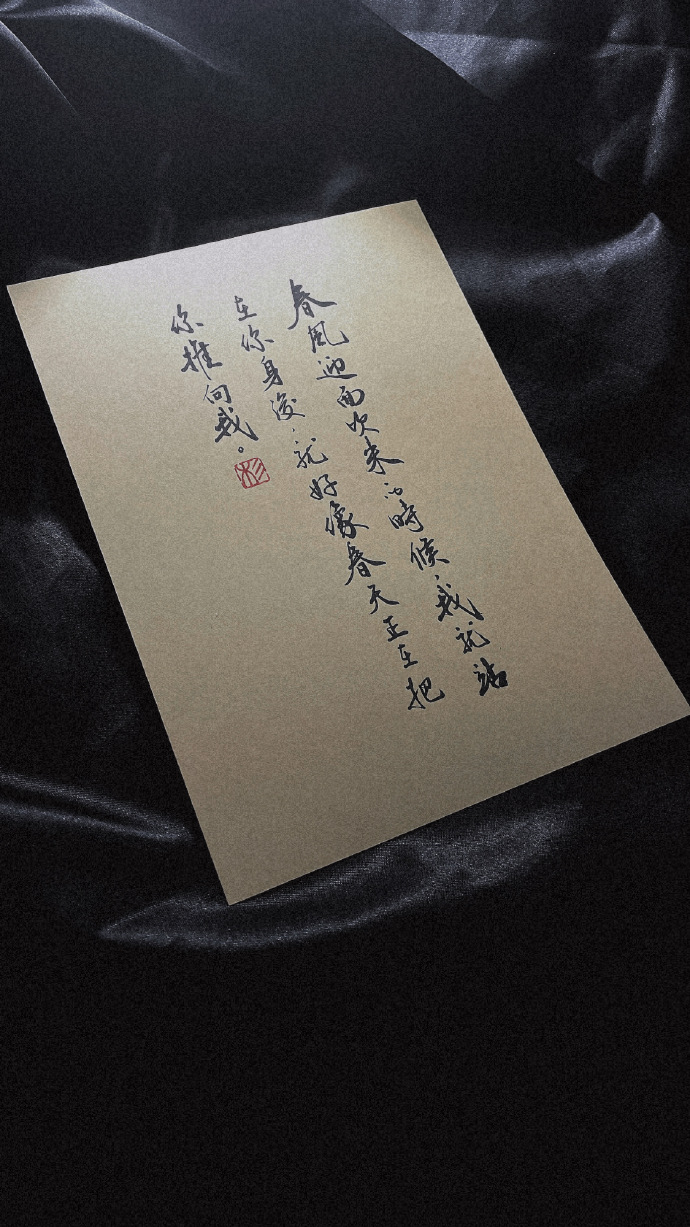 春風迎面吹来的時候，我就站
在你身後，就好像春天正在把
你推向我。
杉